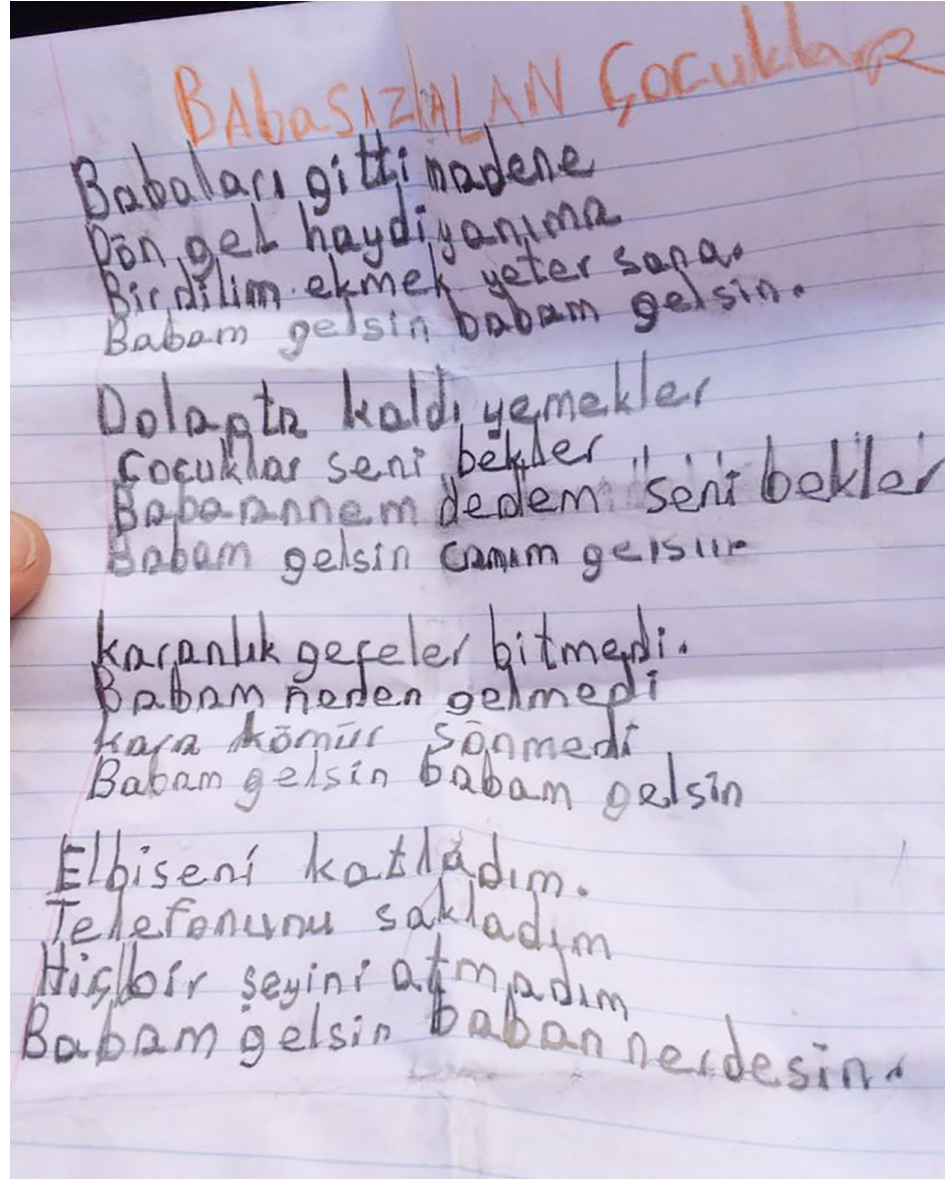 BAbaSIZ KALAN Çocuklar
Babaları gitti madene
Dön gel haydi yanıma
Bir dilim ekmek yeter sana.
Babam gelsin babam gelsin.
Dolapta kaldı yemekler
Çocuklar seni bekler
Babaannem dedem seni bekler
Babam gelsin canım gelsin
karanlık geçeler bitmedi.
Babam neden gelmedi
kara kömür sönmedi
Babam gelsin babam gelsin
Elbiseni katladım.
Telefonunu sakladım
Hiçbir şeyini atmadım
Babam gelsin baban nerdesin.